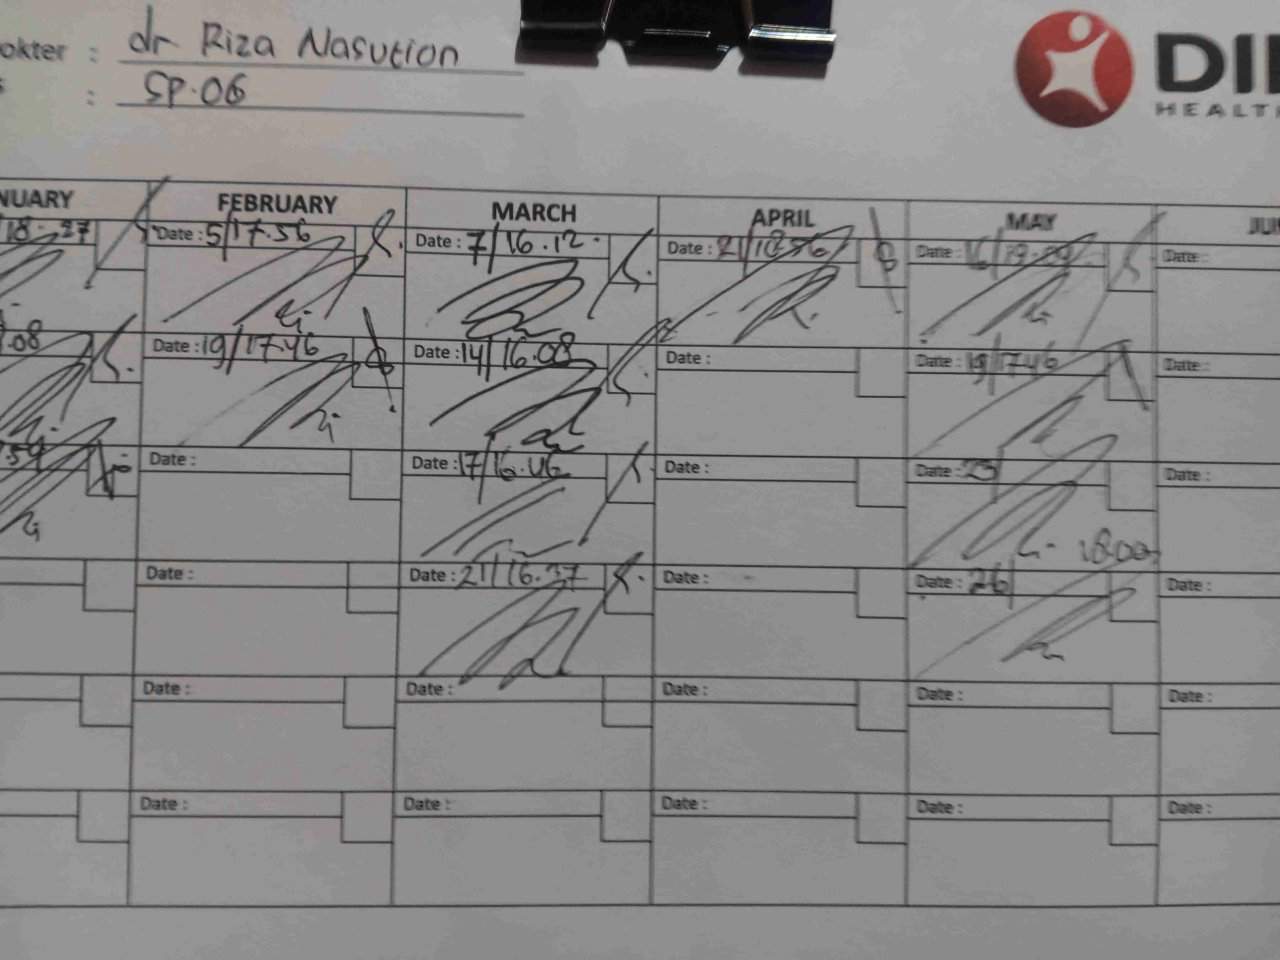 okter : dr Riza Nasution
: SP.06
DI
HEALT
NUARY FEBRUARY MARCH APRIL MAY JU
18.27 Date : 5/17.56 Date : 7/16.12 Date : 21/18.56 Date : 16/19.09 Date :
.08 Date : 19/17.46 Date : 14/16.08 Date : Date : 19/17.46 Date :
.54 Date : Date : 17/16.46 Date : Date : 23 Date :
18.00
Date : Date : 21/16.37 Date : Date : 26 Date :
Date : Date : Date : Date : Date :
Date : Date : Date : Date : Date :